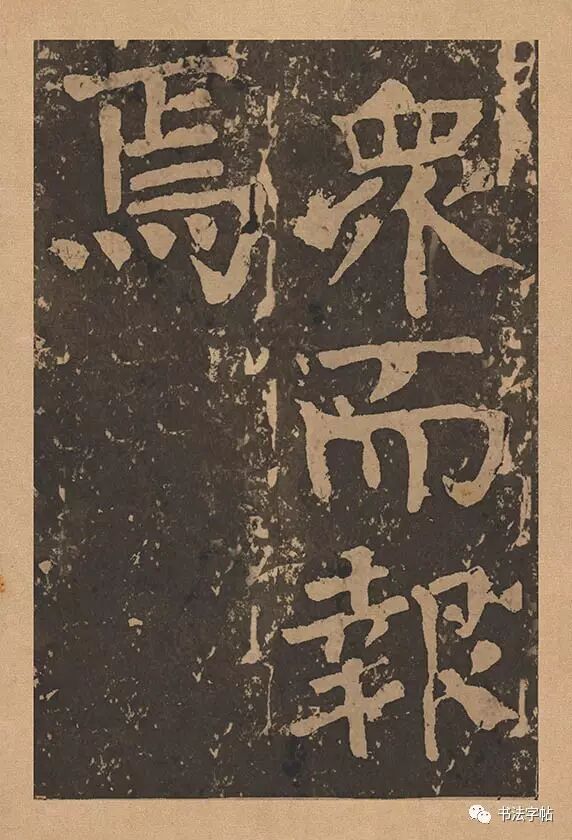 眾而報
焉
书法字帖